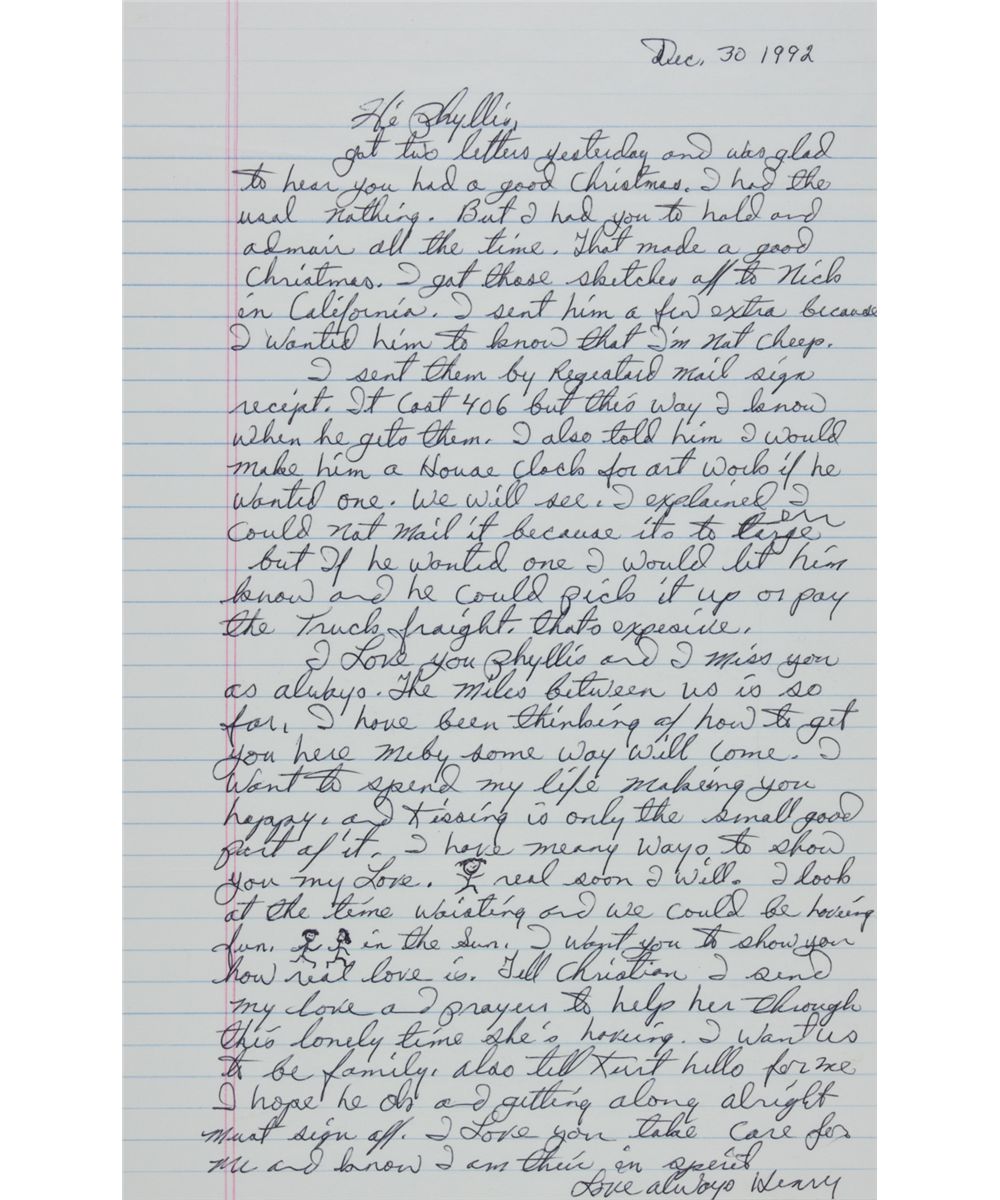 Dec. 30 1992
Hi Phyllis,
got two letters yesterday and was glad
to hear you had a good Christmas. I had the
usal nothing. But I had you to hold and
admair all the time. That made a good
Christmas. I got those sketches off to Nick
in California. I sent him a few extra because
I wanted him to know that I'm not cheep.
I sent them by Regestard mail sign
recipt. It cost 406 but this way I know
when he gets them. I also told him I would
make him a House Clock for art work if he
wanted one. We will see. I explained I
could not mail it because its to large
but If he wanted one I would let him
know and he could pick it up or pay
the Truck fraight. thats expesive.
I Love you Phyllis and I miss you
as always. The miles between us is so
far, I have been thinking of how to get
you here meby some way will come. I
want to spend my life makeing you
happy. and Kissing is only the small good
part of it. I have meany ways to show
you my Love. real soon I will. I look
at the time waisting and we could be haveing
fun. in the Sun. I want you to show you
how real love is. Tell Christian I send
my love and prayers to help her through
this lonely time she's haveing. I want us
to be family. also tell Kurt hello for me
I hope he ok and getting along alright
must sign off. I Love you take care for
me and know I am their in speirit
Love always Henry